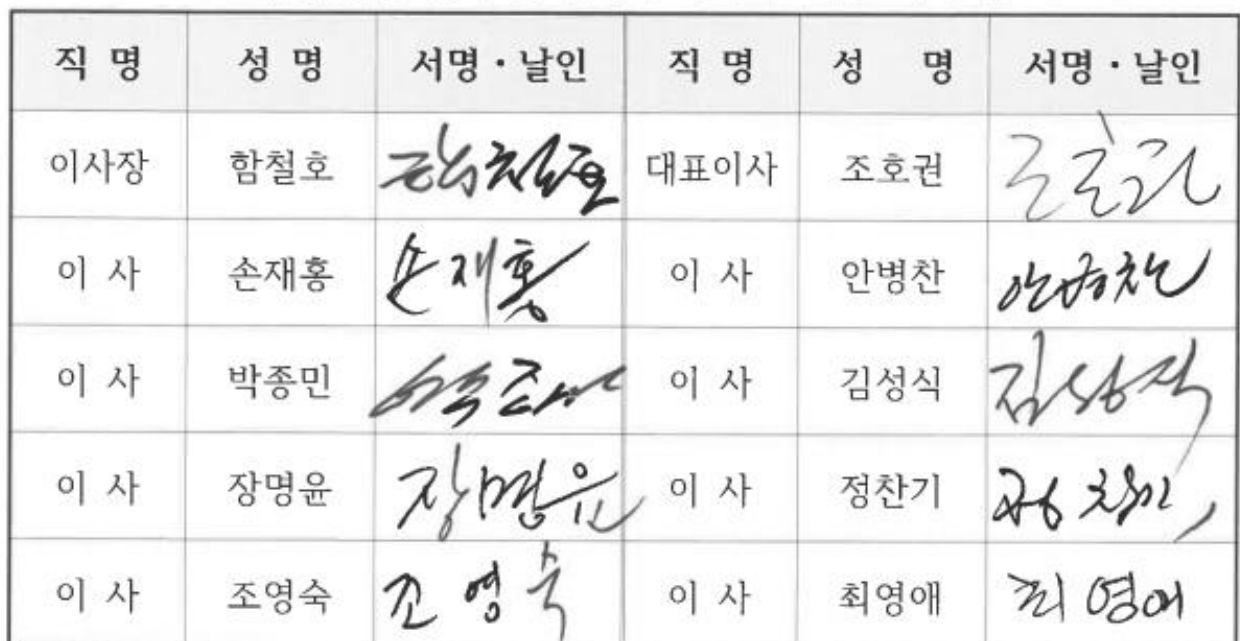 직 명 성 명 서명·날인 직 명 성 명 서명·날인
이사장 함철호 함철호 대표이사 조호권 조호권
이 사 손재홍 손재홍 이 사 안병찬 안병찬
이 사 박종민 박종민 이 사 김성식 김성식
이 사 장명윤 장명윤 이 사 정찬기 정찬기
이 사 조영숙 조영숙 이 사 최영애 최영애